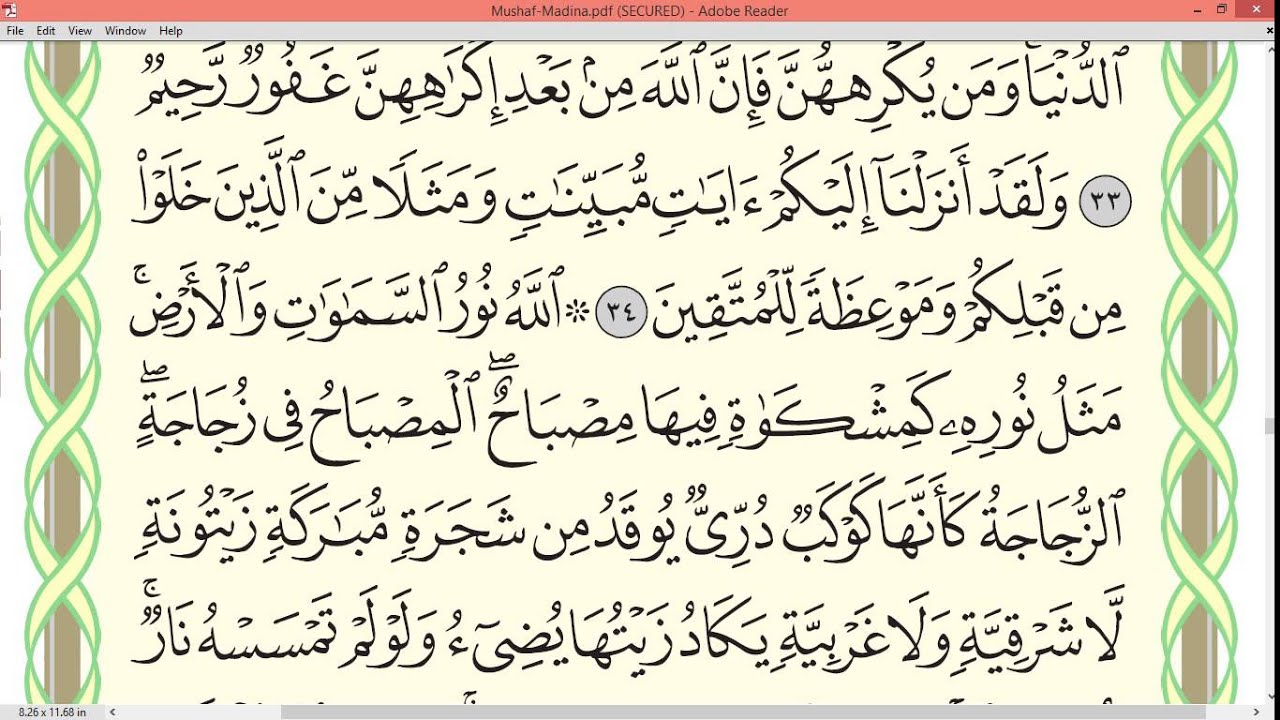 Mushaf-Madina.pdf (SECURED) - Adobe Reader
File Edit View Window Help
ٱلدُّنۡيَاۚ وَمَن يُكۡرِههُّنَّ فَإِنَّ ٱللَّهَ مِنۢ بَعۡدِ إِكۡرَٰهِهِنَّ غَفُورٞ رَّحِيمٞ
٣٣ وَلَقَدۡ أَنزَلۡنَآ إِلَيۡكُمۡ ءَايَٰتٖ مُّبَيِّنَٰتٖ وَمَثَلٗا مِّنَ ٱلَّذِينَ خَلَوۡاْ
مِن قَبۡلِكُمۡ وَمَوۡعِظَةٗ لِّلۡمُتَّقِينَ ٣٤ ۞ ٱللَّهُ نُورُ ٱلسَّمَٰوَٰتِ وَٱلۡأَرۡضِۚ
مَثَلُ نُورِهِۦ كَمِشۡكَوٰةٖ فِيهَا مِصۡبَاحٌۖ ٱلۡمِصۡبَاحُ فِي زُجَاجَةٍۖ
ٱلزُّجَاجَةُ كَأَنَّهَا كَوۡكَبٞ دُرِّيّٞ يُوقَدُ مِن شَجَرَةٖ مُّبَٰرَكَةٖ زَيۡتُونَةٖ
لَّا شَرۡقِيَّةٖ وَلَا غَرۡبِيَّةٖ يَكَادُ زَيۡتُهَا يُضِيٓءُ وَلَوۡ لَمۡ تَمۡسَسۡهُ نَارٞۚ
8.26 x 11.68 in